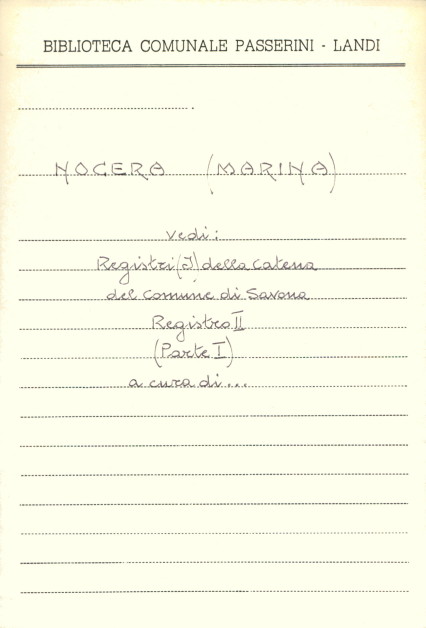 BIBLIOTECA COMUNALE PASSERINI - LANDI
NOCERA (MARINA)
vedi:
Registri (I) della Catena
del Comune di Savona
Registro II
(Parte I)
a cura di...